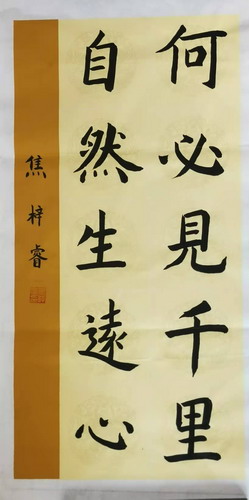 何必見千里
自然生遠心
焦梓睿